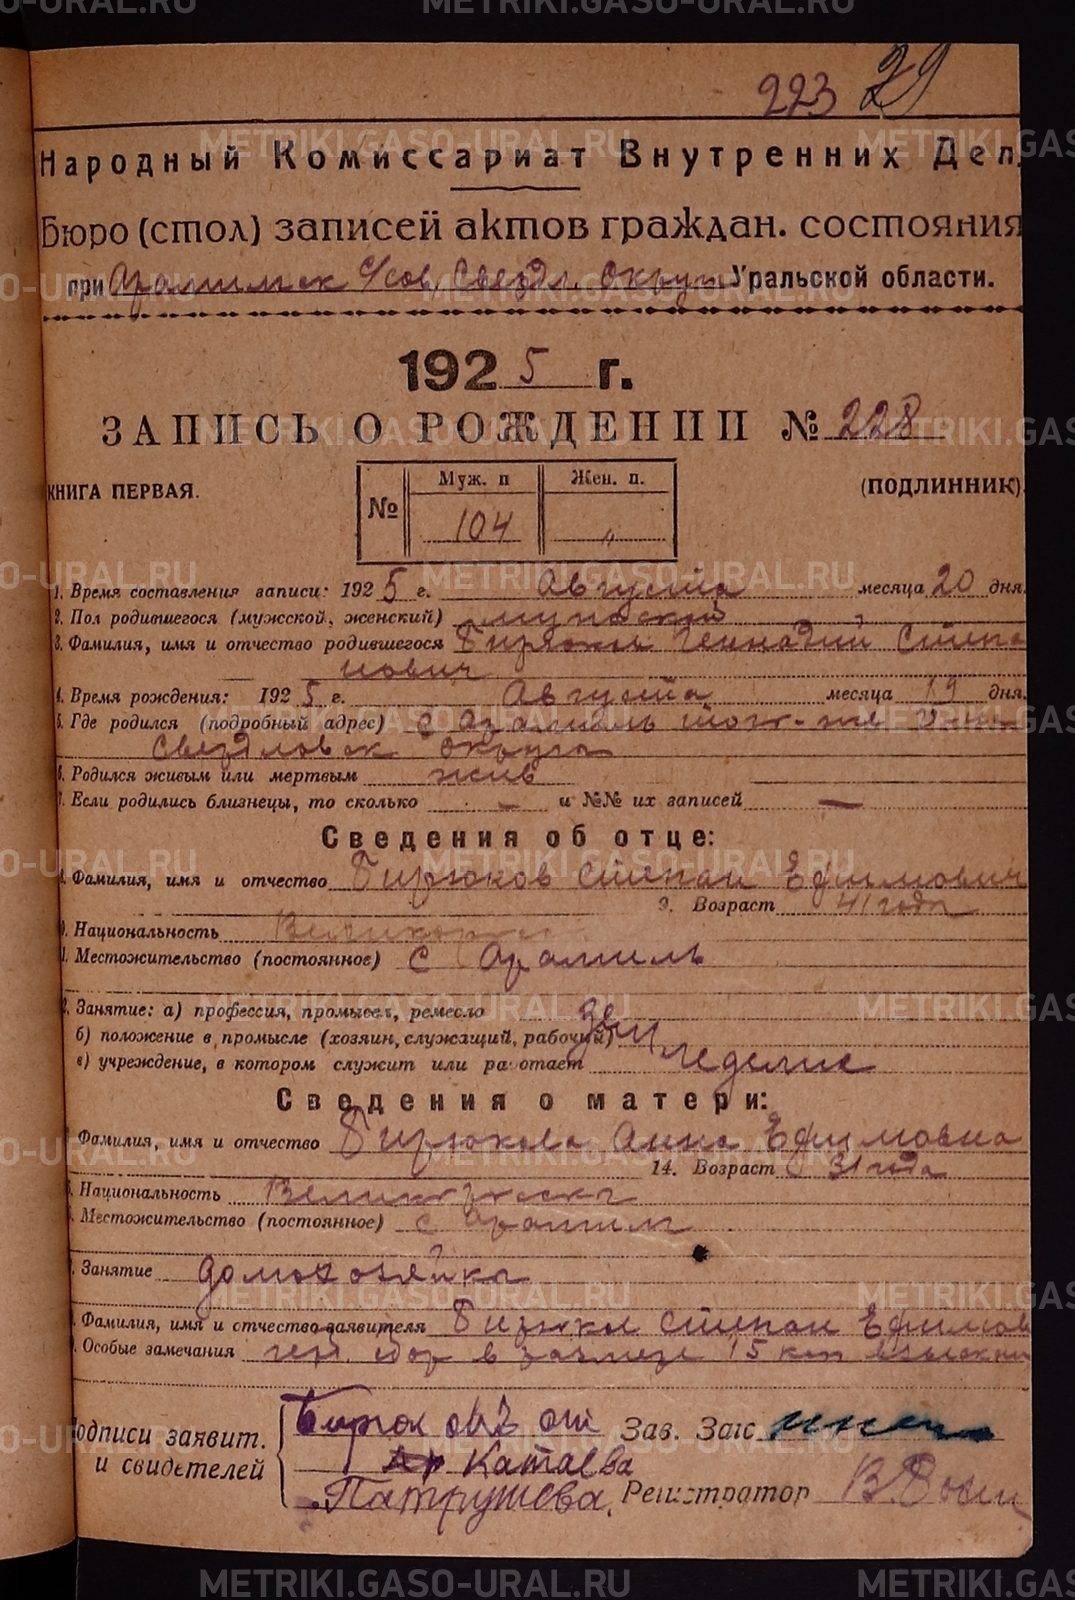 METRIKI.GASO-URAL.RU
223 29
Народный Комиссариат Внутренних Дел.
Бюро (стол) записей актов граждан. состояния
при Арамильск с/сов. Свердл. Округа Уральской области.
1925 г.
ЗАПИСЬ О РОЖДЕНИИ № 228
КНИГА ПЕРВАЯ.
№ Муж. п Жен. п.
104 "
(ПОДЛИННИК).
1. Время составления записи: 1925 г. Августа месяца 20 дня.
2. Пол родившегося (мужской, женский) мужской
3. Фамилия, имя и отчество родившегося Бирюков Геннадий Степа
нович
4. Время рождения: 1925 г. Августа месяца 19 дня.
5. Где родился (подробный адрес) с Арамиль того-же
Свердловск округа
6. Родился живым или мертвым жив
7. Если родились близнецы, то сколько — и №№ их записей —
Сведения об отце:
8. Фамилия, имя и отчество Бирюков Степан Ефимович
9. Возраст 41 года
0. Национальность Великоросс
1. Местожительство (постоянное) с Арамиль
2. Занятие: а) профессия, промысел, ремесло зем
б) положение в промысле (хозяин, служащий, рабочий)
в) учреждение, в котором служит или работает леделие
Сведения о матери:
Фамилия, имя и отчество Бирюкова Анна Ефимовна
14. Возраст 31 года
5. Национальность Великоросска
6. Местожительство (постоянное) с Арамиль
7. Занятие домохозяйка
8. Фамилия, имя и отчество заявителя Бирюков Степан Ефимов
9. Особые замечания сбор в размере 15 коп взыскан
Подписи заявит.
и свидетелей
Зав. Загс
Катаева
Патрушева.
Регистратор